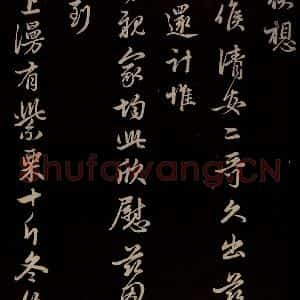 想
侯清安二哥久出
還計惟
親家均此欣慰茲因
到
上漫有紫栗十斤冬
shufawang.CN